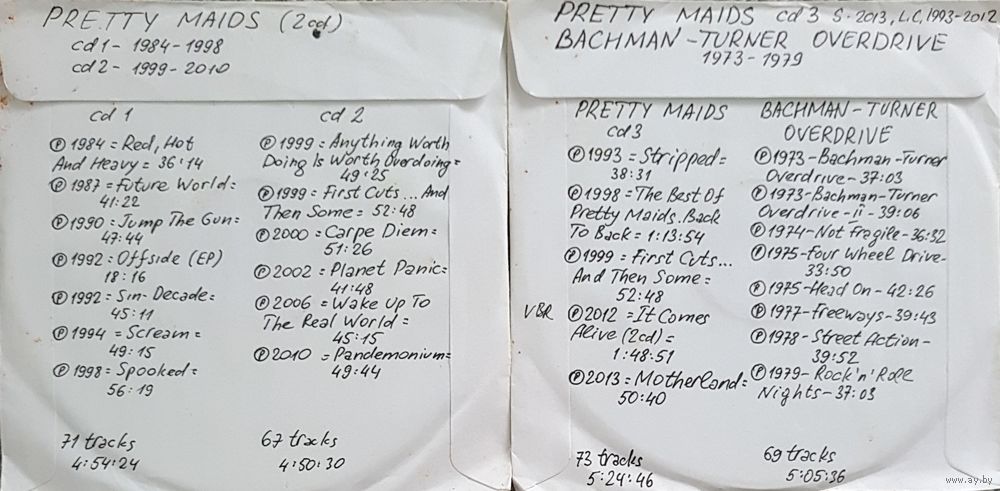 PRETTY MAIDS (2cd)
cd1 - 1984-1998
cd2 - 1999-2010
cd 1
Ⓟ 1984 = Red, Hot
And Heavy = 36:14
Ⓟ 1987 = Future World =
41:22
Ⓟ 1990 = Jump The Gun =
47:44
Ⓟ 1992 = Offside (EP)
18:16
Ⓟ 1992 = Sin-Decade =
45:11
Ⓟ 1994 = Scream =
49:15
Ⓟ 1998 = Spooked =
56:19
71 tracks
4:54:24
cd 2
Ⓟ 1999 = Anything Worth
Doing Is Worth Overdoing =
49:25
Ⓟ 1999 = First Cuts... And
Then Some = 52:48
Ⓟ 2000 = Carpe Diem =
51:26
Ⓟ 2002 = Planet Panic =
41:48
Ⓟ 2006 = Wake Up To
The Real World =
45:15
Ⓟ 2010 = Pandemonium =
49:44
67 tracks
4:50:30
PRETTY MAIDS cd3 S-2013, L.C, 1993-2012
BACHMAN-TURNER OVERDRIVE
1973-1979
PRETTY MAIDS
cd3
Ⓟ 1993 = Stripped =
38:31
Ⓟ 1998 = The Best Of
Pretty Maids. Back
To Back = 1:13:54
Ⓟ 1999 = First Cuts...
And Then Some =
52:48
VBR Ⓟ 2012 = It Comes
Alive (2cd) =
1:48:51
Ⓟ 2013 = Motherland =
50:40
73 tracks
5:24:46
BACHMAN-TURNER
OVERDRIVE
Ⓟ 1973-Bachman-Turner
Overdrive-37:03
Ⓟ 1973-Bachman-Turner
Overdrive-ii-39:06
Ⓟ 1974-Not Fragile-36:32
Ⓟ 1975-Four Wheel Drive-
33:50
Ⓟ 1975-Head On-42:26
Ⓟ 1977-Freeways-39:43
Ⓟ 1978-Street Action-
39:52
Ⓟ 1979-Rock'n'Roll
Nights-37:03
69 tracks
5:05:36
www.ay.by